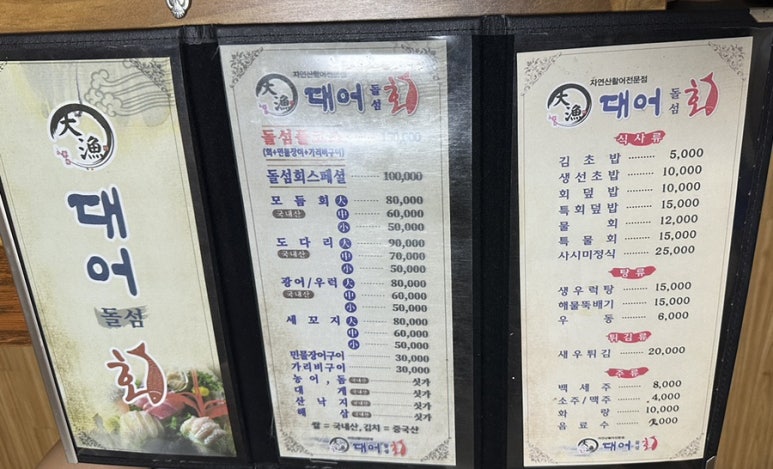 大漁
대어
돌섬
회
자연산활어전문점
大漁 대어 돌섬 회
돌섬
(회+민물장어+가리비구이)
돌섬회스페셜 100,000
모듬회 大 80,000
국내산 中 60,000
小 50,000
도다리 大 90,000
국내산 中 70,000
小 50,000
광어/우럭 大 80,000
국내산 中 60,000
小 50,000
세꼬지 大 80,000
中 60,000
小 50,000
민물장어구이 30,000
가리비구이 30,000
농어, 돔 국내산 싯가
대게 싯가
산낙지 국내산 싯가
해삼 국내산 싯가
쌀 = 국내산, 김치 = 중국산
자연산활어전문점
대어 돌섬 회
자연산활어전문점
大漁 대어 돌섬 회
식사류
김초밥 5,000
생선초밥 10,000
회덮밥 10,000
특회덮밥 15,000
물회 12,000
특물회 15,000
사시미정식 25,000
탕류
생우럭탕 15,000
해물뚝배기 15,000
우동 6,000
튀김류
새우튀김 20,000
주류
백세주 8,000
소주/맥주 4,000
화랑 10,000
음료수
자연산활어전문점
대어 돌섬 회